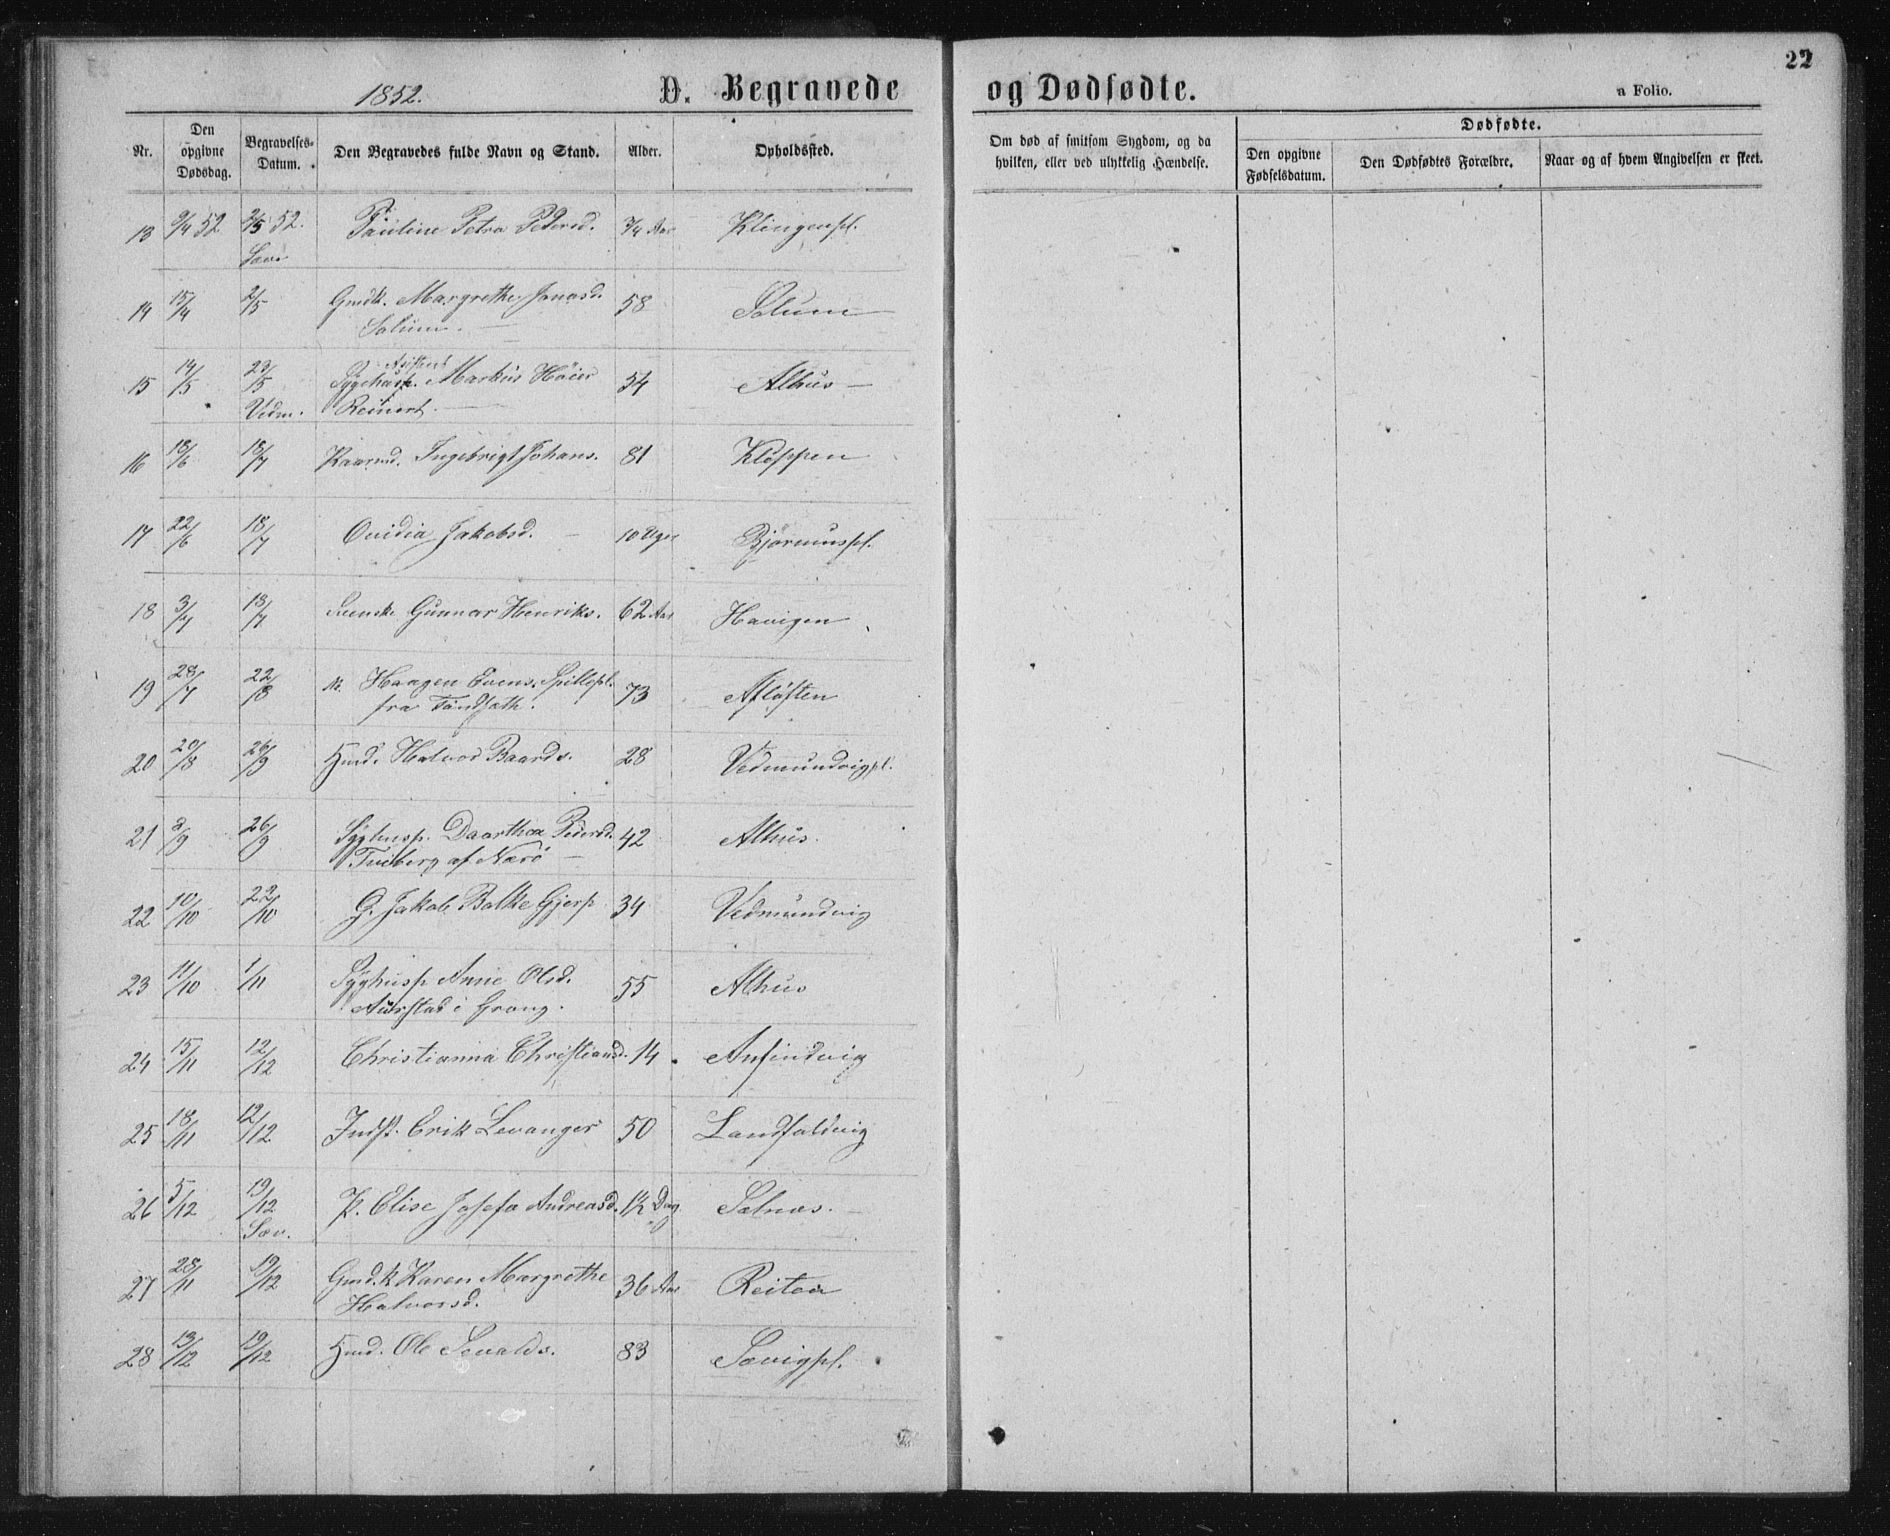 1852. D. Begravede og Dødfødte.
22
a Folio.
Nr. Den opgivne Dødsdag. Begravelses-Datum. Den Begravedes fulde Navn og Stand. Alder. Opholdssted. Om død af smitsom Sygdom, og da hvilken, eller ved ulykkelig Hændelse. Dødfødte.
Den opgivne Fødselsdatum. Den Dødfødtes Forældre. Naar og af hvem Angivelsen er skeet.
13 9/4 52 2/5 52. Pauline Petra Petersd. 3/4 Aar Klingenpl.
Sæv.
14 15/4 2/5 Gmdk. Margrethe Jonasd. 58 Solum
Solum.
15 14/5 23/5 Markus Höier 54 Alhus
Vedm. Reinert.
16 13/6 18/7 Kaarmd. Ingebrigt Johans. 81 Kloppen
17 22/6 18/7 Ovidia Jakobsd. 10 Uger Bjørnnespl.
18 3/7 18/7 Svenske Gunnar Henriks. 62 Aar Havigen
19 28/7 22/8 Haagen Evens. 73 Afløften
fra
20 20/8 26/9 Hmd. Halvor Baards. 28 Vedmundvigpl.
21 3/9 26/9 Syghusp. Daarthea Pedersd. 42 Alhus.
af Nærö
22 10/10 22/10 G. Jakob Balke Gjerp 34 Vedmundvig
23 11/10 1/11 Syghusp. Anne Olsd. 55 Alhus
Aurstad i Grong.
24 15/11 12/12 Christianna Christiansd. 14. Anfindvig
25 18/11 12/12 Indst. Erik Levanger 50 Landfaldvig
26 5/12 19/12 P. Elise Josefa Andreasd. 1½ Dag Salnæs.
Sæv.
27 28/11 19/12 Gmd.k Karen Margrethe 36 Aar Reiten
Halvorsd.
28 13/12 19/12 Hmd. Ole Sevalds. 83 Sævigpl.